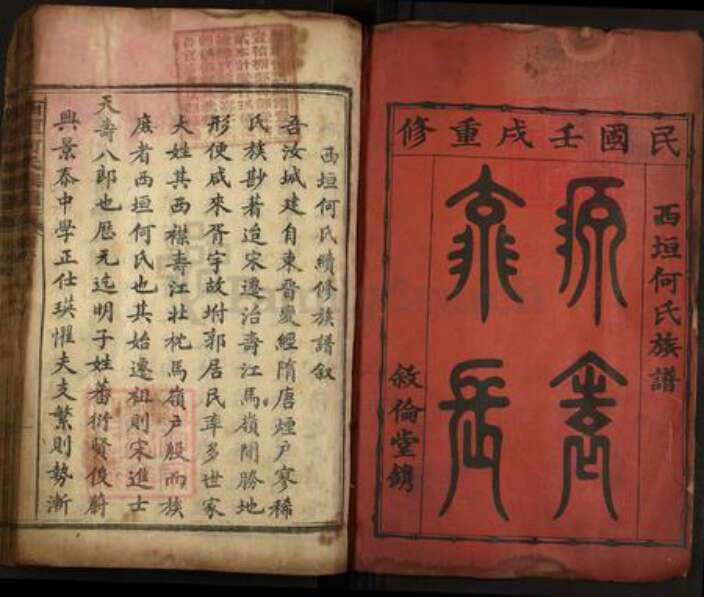 民國壬戌重修
西垣何氏族譜
源遠
流長
敘倫堂鐫
西垣何氏續修族譜叙
吾汝城建自東晉更經隋唐煙户寥稀
氏族尠著迨宋遷治壽江馬嶺間勝地
形便咸來胥宇故坿郭居民率多世家
大姓其西襟壽江壯枕馬嶺户殷而族
庶者西垣何氏也其始遷祖則宋進士
天壽八郎也歷元迄明子姓蕃衍賢俊蔚
興景泰中學正仕瑛懼夫支繁則勢漸